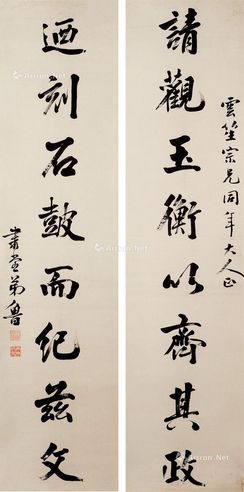 雲笙宗兄同年大人正
請觀玉衡以齊其政
迺刻石鼓而紀茲文
弟魯